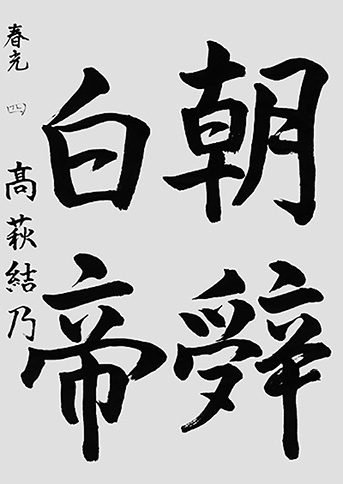 朝辭
白帝
春充 四
髙萩結乃